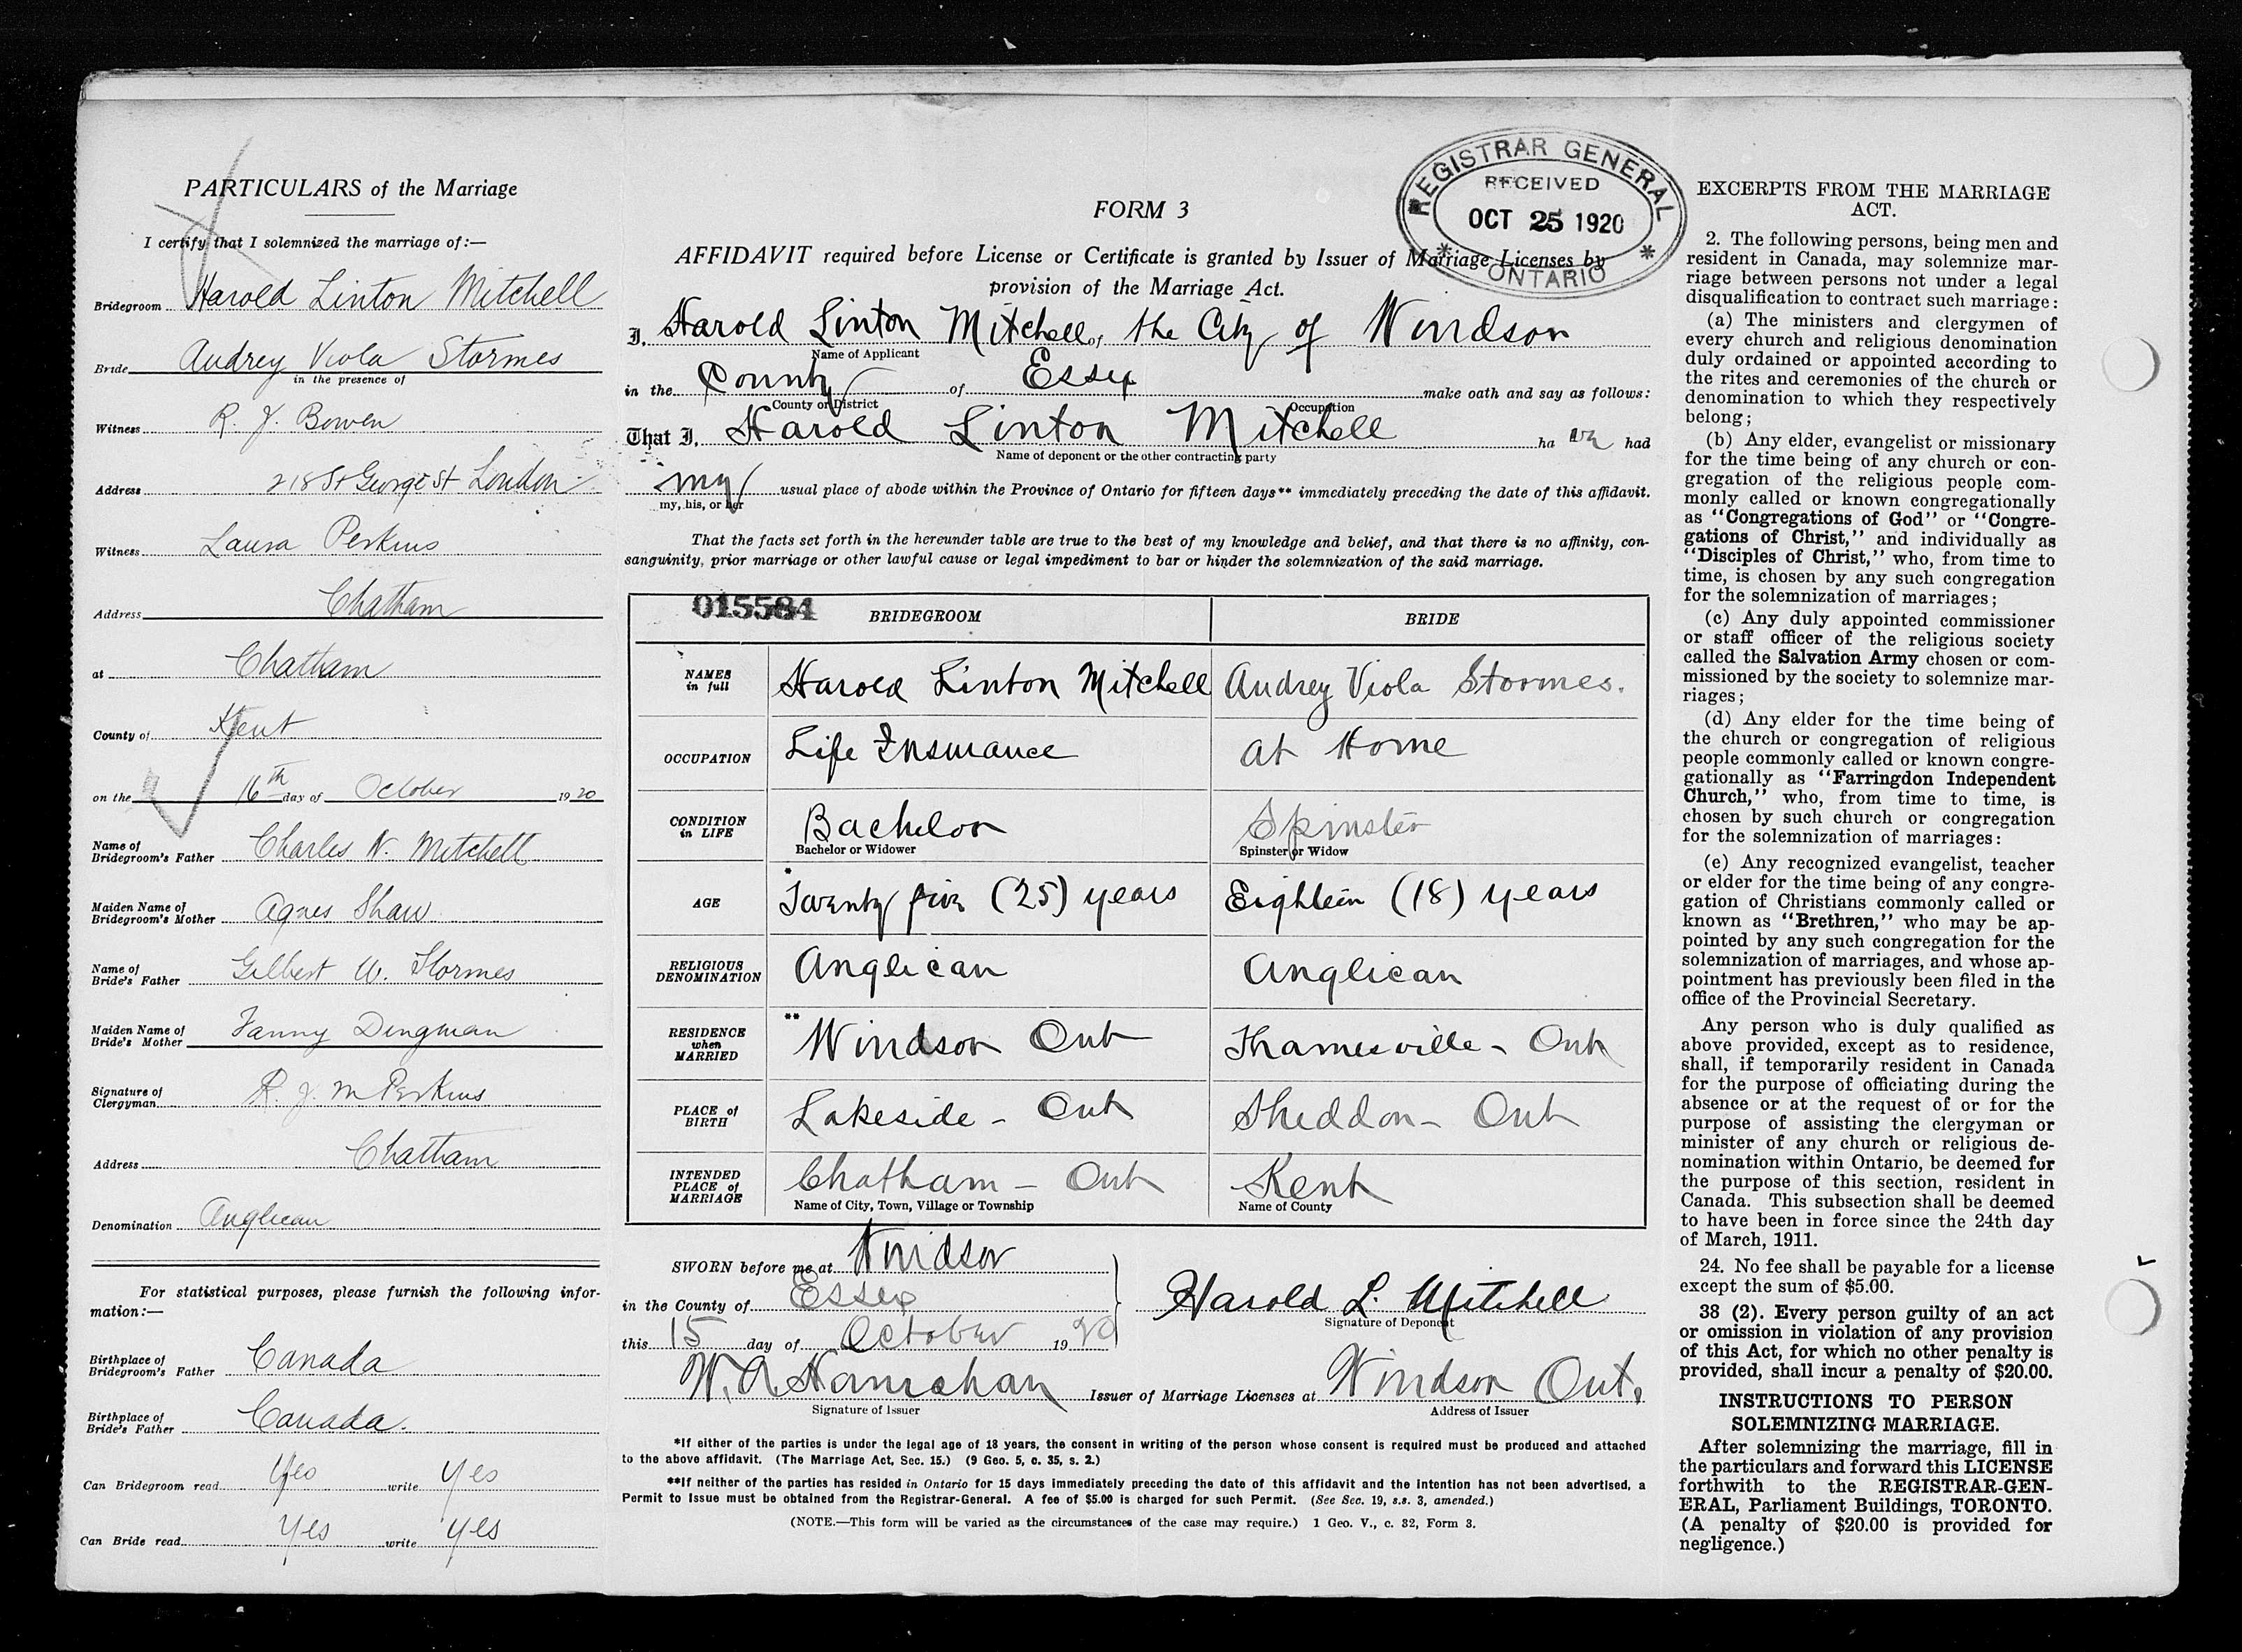 PARTICULARS of the Marriage
I certify that I solemnized the marriage of:—
Bridegroom Harold Linton Mitchell
Bride Audrey Viola Stormes
in the presence of
Witness R. J. Bowen
Address 218 St George St London
Witness Laura Perkins
Address Chatham
at Chatham
County of Kent
on the 16th day of October 1920
Name of
Bridegroom's Father Charles N. Mitchell
Maiden Name of
Bridegroom's Mother Agnes Shaw
Name of
Bride's Father Gilbert W. Stormes
Maiden Name of
Bride's Mother Fanny Dingman
Signature of
Clergyman R. J. M Perkins
Address Chatham
Denomination Anglican
For statistical purposes, please furnish the following infor-
mation:—
Birthplace of
Bridegroom's Father Canada
Birthplace of
Bride's Father Canada.
Can Bridegroom read Yes write Yes
Can Bride read Yes write Yes
REGISTRAR GENERAL
RECEIVED
OCT 25 1920
* ONTARIO *
FORM 3
AFFIDAVIT required before License or Certificate is granted by Issuer of Marriage Licenses by
provision of the Marriage Act.
I, Harold Linton Mitchell of the City of Windsor
Name of Applicant
in the County of Essex make oath and say as follows:
County or District Occupation
That I, Harold Linton Mitchell ha ve had
Name of deponent or the other contracting party
my usual place of abode within the Province of Ontario for fifteen days** immediately preceding the date of this affidavit.
my, his, or her
That the facts set forth in the hereunder table are true to the best of my knowledge and belief, and that there is no affinity, con-
sanguinity, prior marriage or other lawful cause or legal impediment to bar or hinder the solemnization of the said marriage.
015584
BRIDEGROOM BRIDE
NAMES
in full Harold Linton Mitchell Audrey Viola Stormes.
OCCUPATION Life Insurance at Home
CONDITION
in LIFE Bachelor Spinster
Bachelor or Widower Spinster or Widow
AGE * Twenty five (25) years Eighteen (18) years
RELIGIOUS
DENOMINATION Anglican Anglican
RESIDENCE
when
MARRIED ** Windsor Ont Thamesville - Ont
PLACE of
BIRTH Lakeside - Ont Sheddon - Ont
INTENDED
PLACE of
MARRIAGE Chatham - Ont Kent
Name of City, Town, Village or Township Name of County
SWORN before me at Windsor
in the County of Essex
this 15 day of October 1920
Harold L. Mitchell
Signature of Deponent
W. A. Hanrahan Issuer of Marriage Licenses at Windsor Ont.
Signature of Issuer Address of Issuer
*If either of the parties is under the legal age of 18 years, the consent in writing of the person whose consent is required must be produced and attached
to the above affidavit. (The Marriage Act, Sec. 15.) (9 Geo. 5, c. 35, s. 2.)
**If neither of the parties has resided in Ontario for 15 days immediately preceding the date of this affidavit and the intention has not been advertised, a
Permit to Issue must be obtained from the Registrar-General. A fee of $5.00 is charged for such Permit. (See Sec. 19, s.s. 3, amended.)
(NOTE.—This form will be varied as the circumstances of the case may require.) 1 Geo. V., c. 32, Form 3.
EXCERPTS FROM THE MARRIAGE
ACT.
2. The following persons, being men and
resident in Canada, may solemnize mar-
riage between persons not under a legal
disqualification to contract such marriage:
(a) The ministers and clergymen of
every church and religious denomination
duly ordained or appointed according to
the rites and ceremonies of the church or
denomination to which they respectively
belong;
(b) Any elder, evangelist or missionary
for the time being of any church or con-
gregation of the religious people com-
monly called or known congregationally
as "Congregations of God" or "Congre-
gations of Christ," and individually as
"Disciples of Christ," who, from time to
time, is chosen by any such congregation
for the solemnization of marriages;
(c) Any duly appointed commissioner
or staff officer of the religious society
called the Salvation Army chosen or com-
missioned by the society to solemnize mar-
riages;
(d) Any elder for the time being of
the church or congregation of religious
people commonly called or known congre-
gationally as "Farringdon Independent
Church," who, from time to time, is
chosen by such church or congregation
for the solemnization of marriages:
(e) Any recognized evangelist, teacher
or elder for the time being of any congre-
gation of Christians commonly called or
known as "Brethren," who may be ap-
pointed by any such congregation for the
solemnization of marriages, and whose ap-
pointment has previously been filed in the
office of the Provincial Secretary.
Any person who is duly qualified as
above provided, except as to residence,
shall, if temporarily resident in Canada
for the purpose of officiating during the
absence or at the request of or for the
purpose of assisting the clergyman or
minister of any church or religious de-
nomination within Ontario, be deemed for
the purpose of this section, resident in
Canada. This subsection shall be deemed
to have been in force since the 24th day
of March, 1911.
24. No fee shall be payable for a license
except the sum of $5.00.
38 (2). Every person guilty of an act
or omission in violation of any provision
of this Act, for which no other penalty is
provided, shall incur a penalty of $20.00.
INSTRUCTIONS TO PERSON
SOLEMNIZING MARRIAGE.
After solemnizing the marriage, fill in
the particulars and forward this LICENSE
forthwith to the REGISTRAR-GEN-
ERAL, Parliament Buildings, TORONTO.
(A penalty of $20.00 is provided for
negligence.)